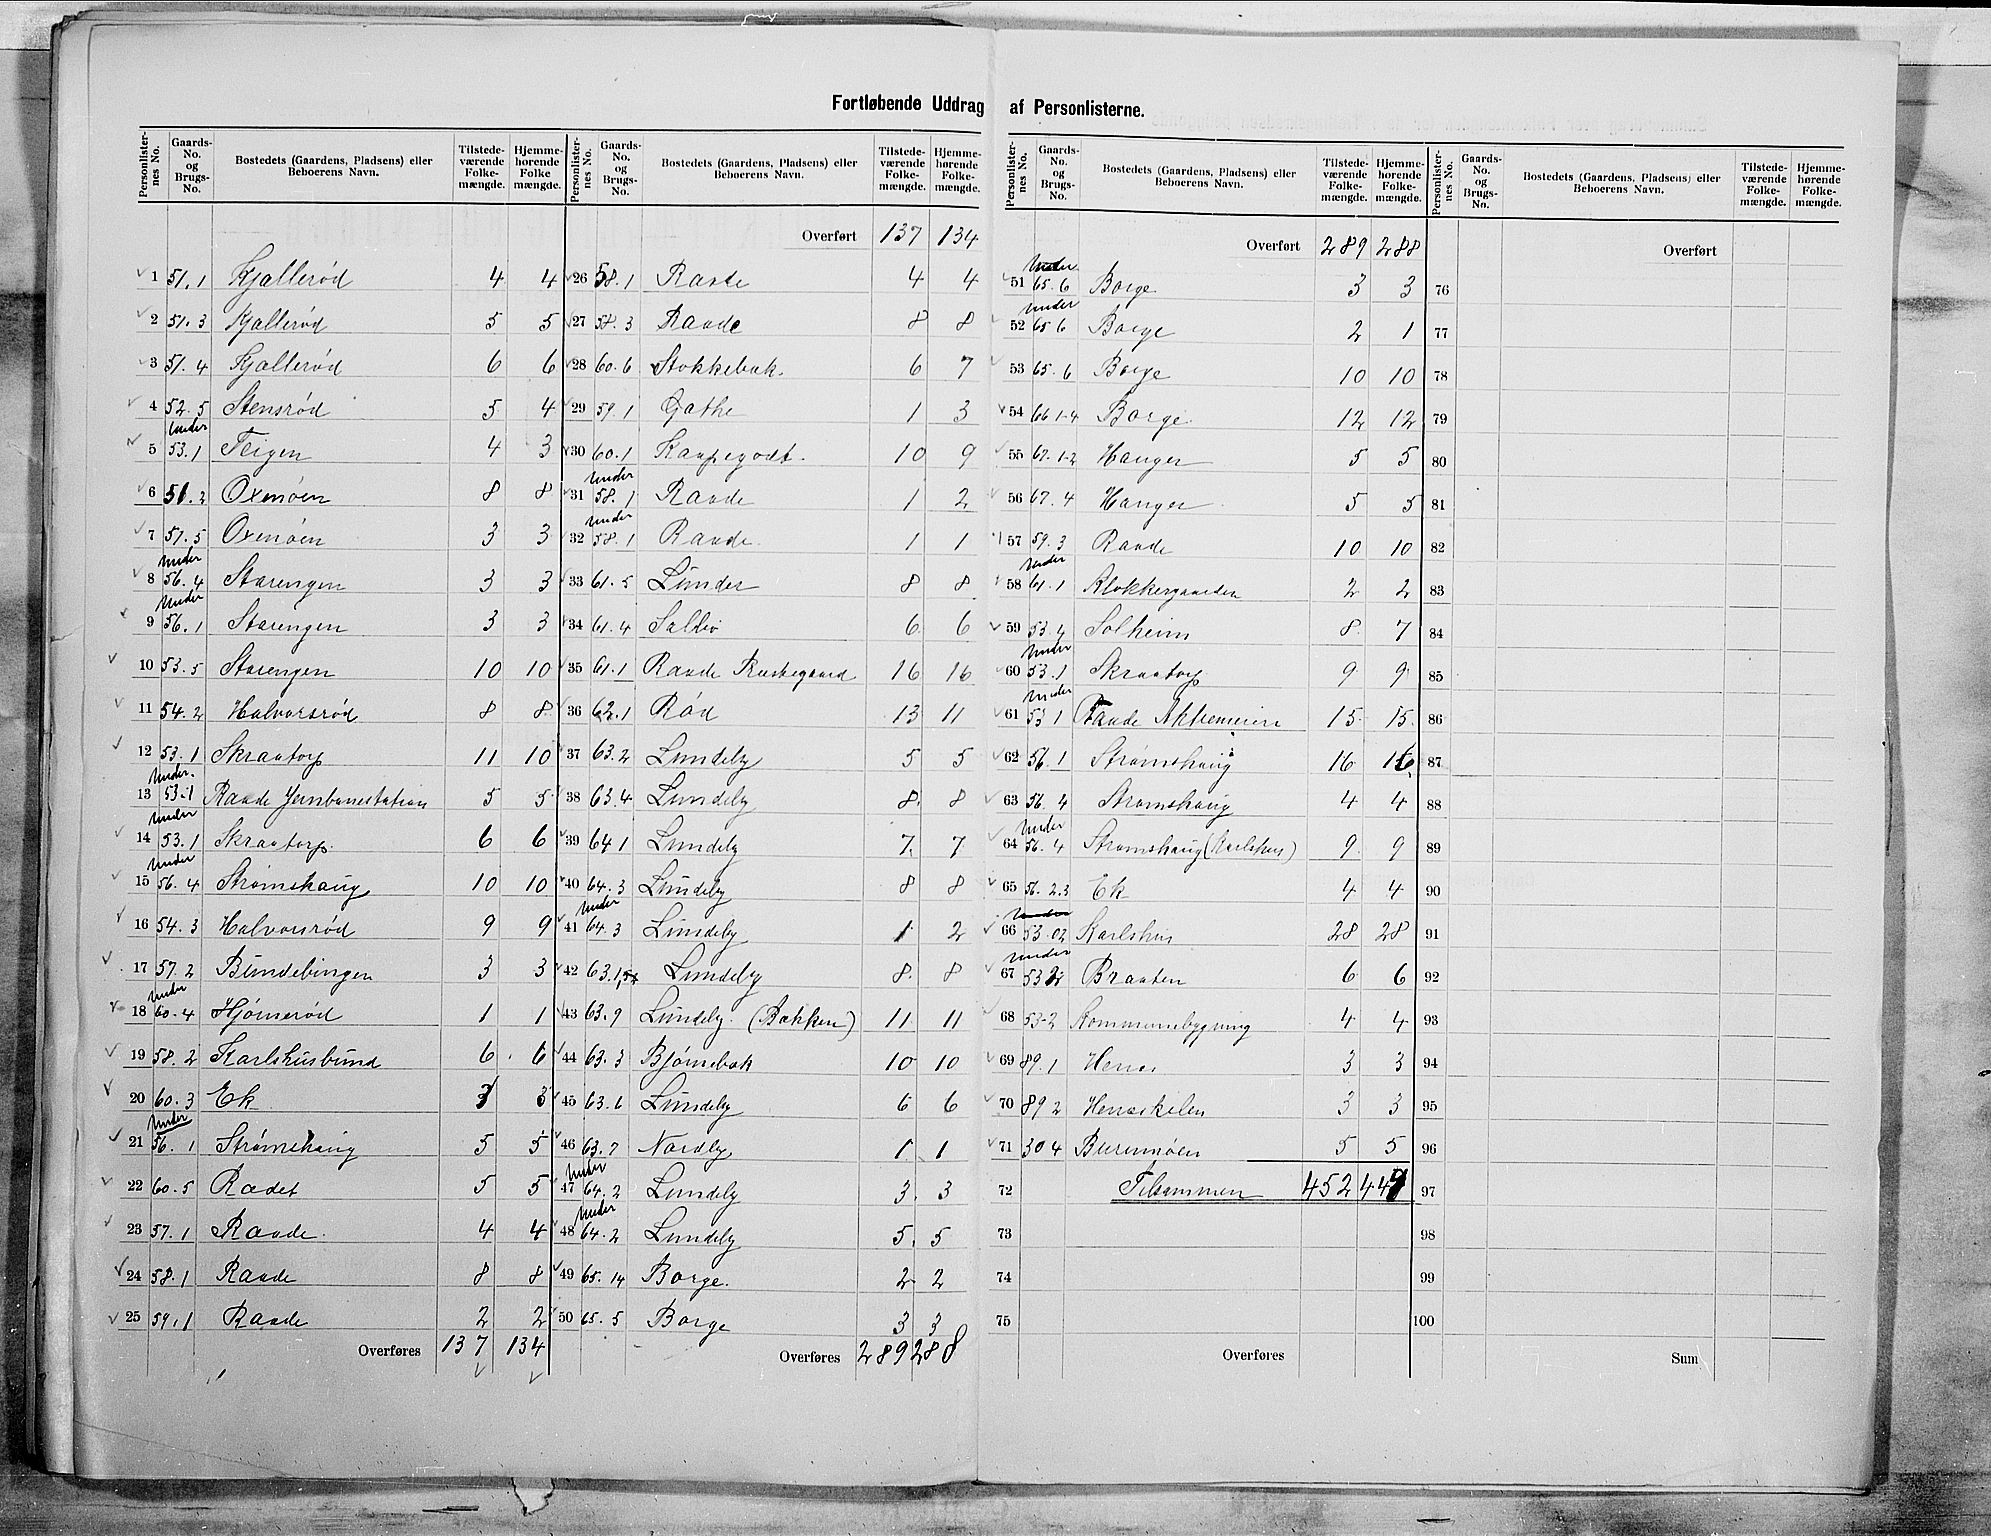 Fortløbende Uddrag af Personlisterne.
Personlisternes No. Gaards-No. og Brugs-No. Bostedets (Gaardens, Pladsens) eller Beboerens Navn. Tilstedeværende Folkemængde. Hjemmehørende Folkemængde.
1 51.1 Kjallerød 4 4
2 51.3 Kjallerød 5 5
3 51.4 Kjallerød 6 6
4 52.5 Stensrød 5 4
5 under 53.1 Teigen 4 3
6 51.2 Oxemøen 8 8
7 51.5 Oxemøen 3 3
8 under 56.4 Starengen 3 3
9 under 56.1 Starengen 3 3
10 53.5 Starengen 10 10
11 54.2 Halvorsrød 8 8
12 53.1 Skraatorp 11 10
13 under 53.1 Raade Jernbanestation 5 5
14 under 53.1 Skraatorp 6 6
15 under 56.4 Strømshaug 10 10
16 54.3 Halvorsrød 9 9
17 57.2 Bundebingen 3 3
18 under 60.4 Hjørnerød 1 1
19 58.2 Karlshusbund 6 6
20 60.3 Ek 3 3
21 under 56.1 Strømshaug 5 5
22 60.5 Rædet 5 5
23 57.1 Raade 4 4
24 58.1 Raade 8 8
25 59.1 Raade 2 2
Overføres 137 134
Personlisternes No. Gaards-No. og Brugs-No. Bostedets (Gaardens, Pladsens) eller Beboerens Navn. Tilstedeværende Folkemængde. Hjemmehørende Folkemængde.
Overført 137 134
26 58.1 Raade 4 4
27 58.3 Raade 8 8
28 60.6 Stokkebæk 6 7
29 59.1 Gathe 1 3
30 60.1 Kaupegodt 10 9
31 under 58.1 Raade 1 2
32 under 58.1 Raade 1 1
33 61.5 Lunder 8 8
34 61.4 Salbo 6 6
35 61.1 Raade Præstegaard 16 16
36 62.1 Rød 13 11
37 63.2 Lundeby 5 5
38 63.4 Lundeby 8 8
39 64.1 Lundeby 7 7
40 64.3 Lundeby 8 8
41 under 64.3 Lundeby 1 2
42 63.1,5 Lundeby 8 8
43 63.9 Lundeby (Bakken) 11 11
44 63.3 Bjørnebæk 10 10
45 63.6 Lundeby 6 6
46 63.7 Nordby 1 1
47 under 64.2 Lundeby 3 3
48 under 64.2 Lundeby 5 5
49 65.14 Borge 2 2
50 65.5 Borge 3 3
Overføres 289 288
Personlisternes No. Gaards-No. og Brugs-No. Bostedets (Gaardens, Pladsens) eller Beboerens Navn. Tilstedeværende Folkemængde. Hjemmehørende Folkemængde.
Overført 289 288
51 under 65.6 Borge 3 3
52 under 65.6 Borge 2 1
53 65.6 Borge 10 10
54 66.1-4 Borge 12 12
55 67.1-2 Hanger 5 5
56 67.4 Hanger 5 5
57 59.3 Raade 10 10
58 under 61.1 Klokkergaarden 2 2
59 53.4 Solheim 8 7
60 under 53.1 Skraatorp 9 9
61 under 53.1 Raade Aktiemeieri 15 15
62 56.1 Strømshaug 16 16
63 56.4 Strømshaug 4 4
64 under 56.4 Strømshaug (Karlshus) 9 9
65 56.2.3 Ek 4 4
66 under 53.02 Karlshus 28 28
67 under 53 Braaten 6 6
68 53-2 Kommunebygning 4 4
69 89.1 Henes 3 3
70 89.2 Henæskelen 3 3
71 30 4 Burumøen 5 5
72 Tilsammen 452 449
73
74
75
Overføres
Personlisternes No. Gaards-No. og Brugs-No. Bostedets (Gaardens, Pladsens) eller Beboerens Navn. Tilstedeværende Folkemængde. Hjemmehørende Folkemængde.
Overført
76
77
78
79
80
81
82
83
84
85
86
87
88
89
90
91
92
93
94
95
96
97
98
99
100
Sum